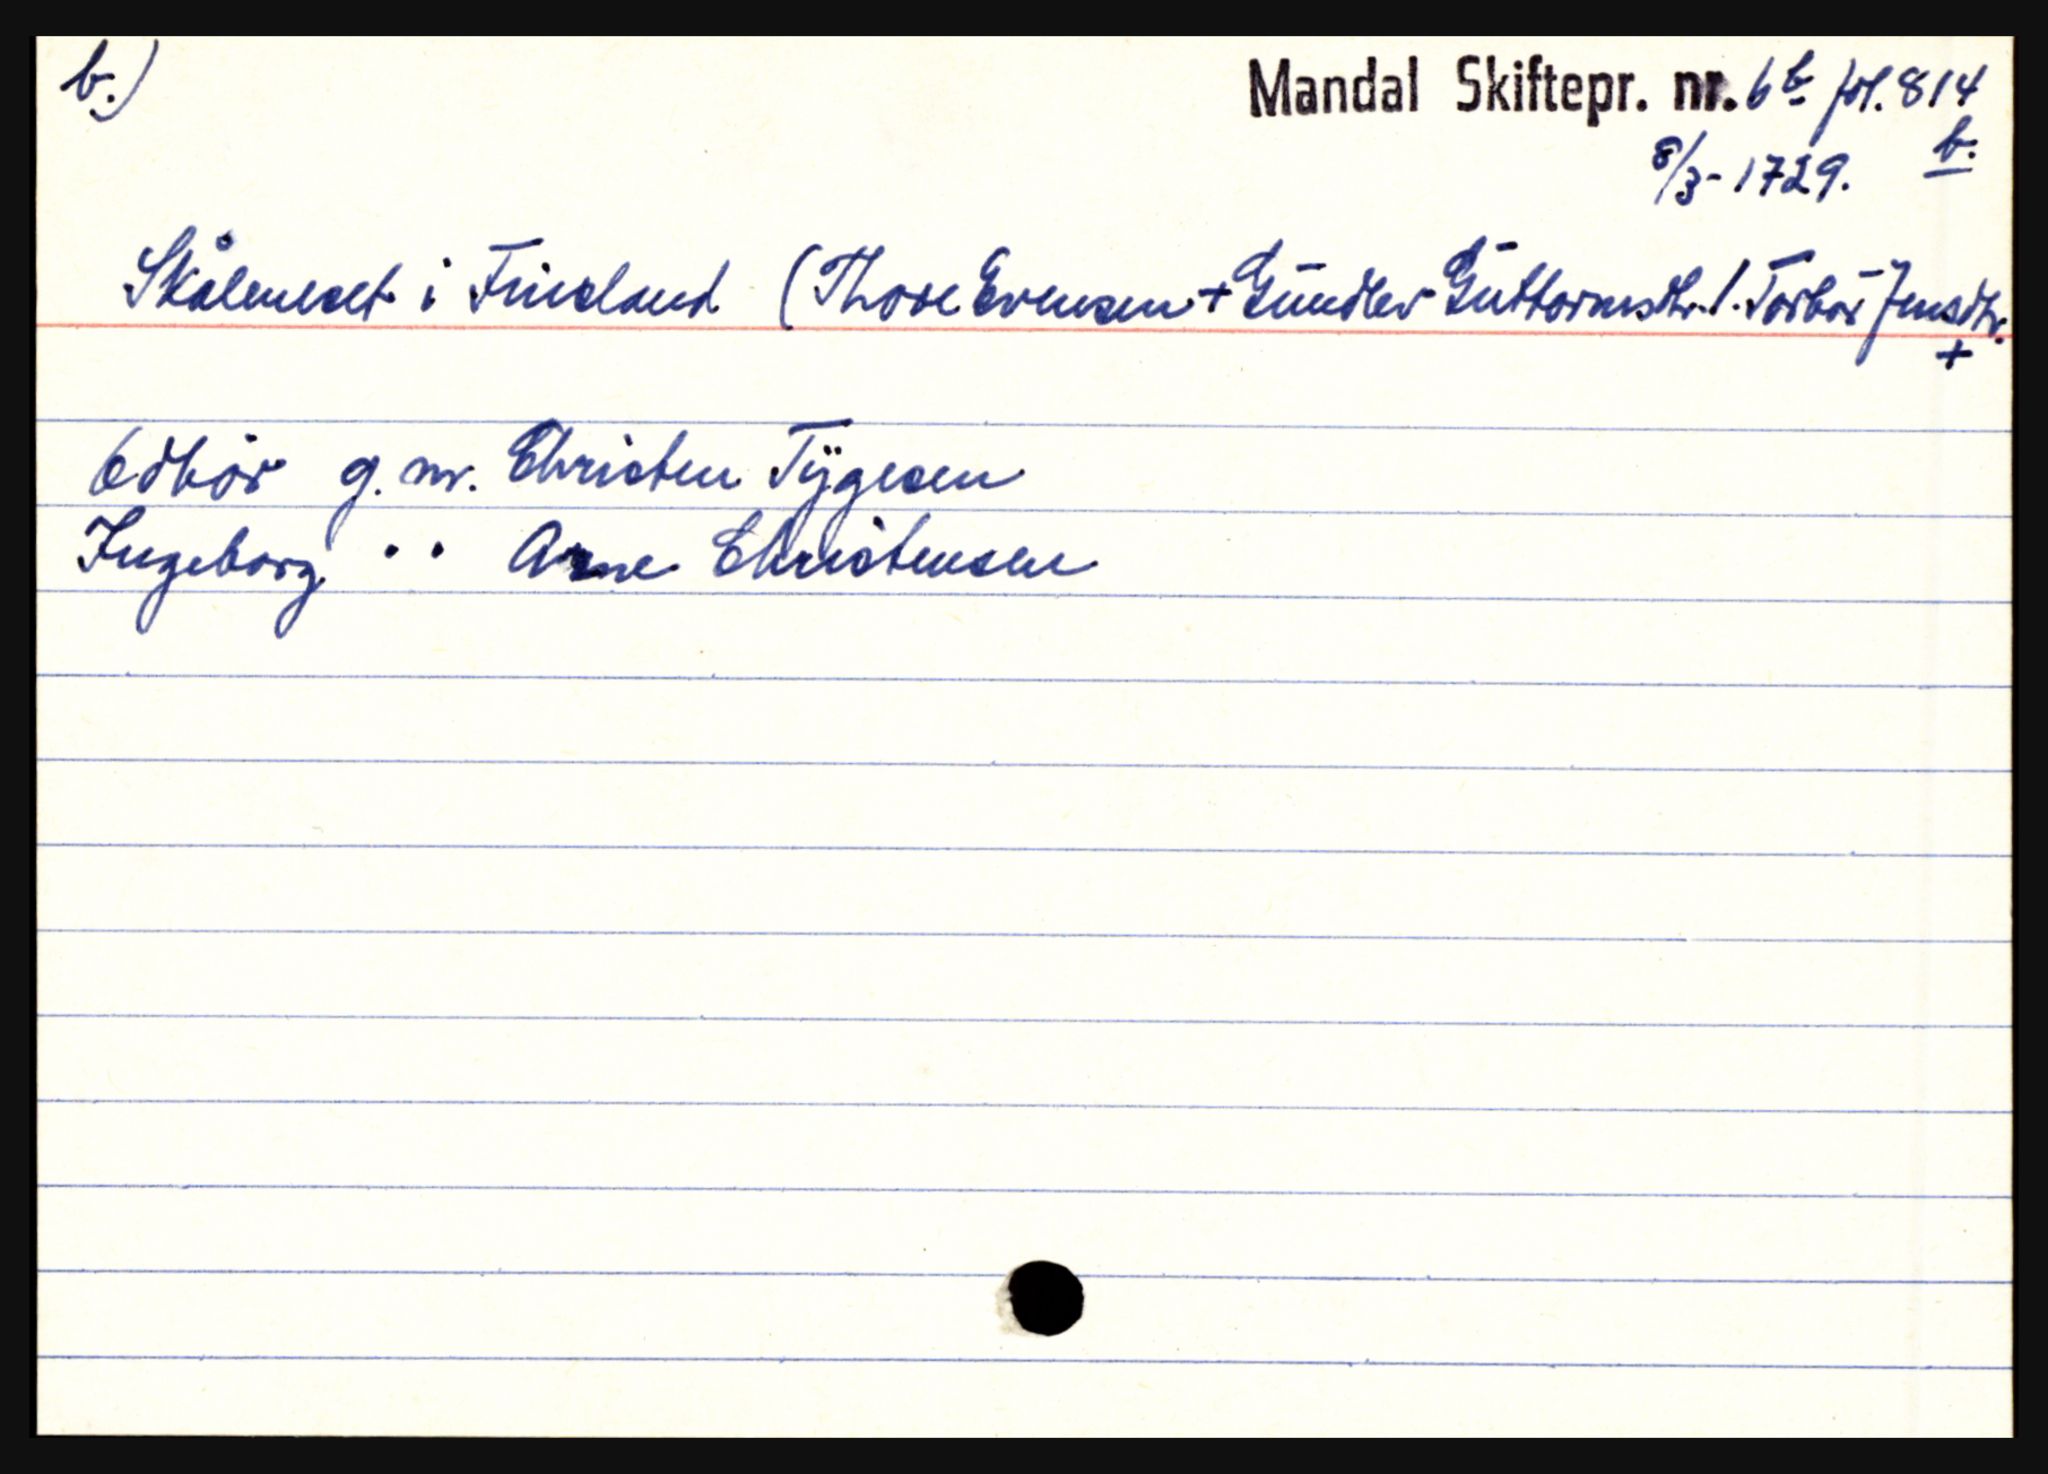 b.)
Mandal Skiftepr. nr. 6b fol. 814
b.
8/3-1729.
Skåleneset i Finsland (Thore Evensen + Gundlev Guttormsdtr. /. Torbor Jensdtr.
+
Odbör g. m. Christen Tÿgesen
Ingeborg " " Arne Christensen